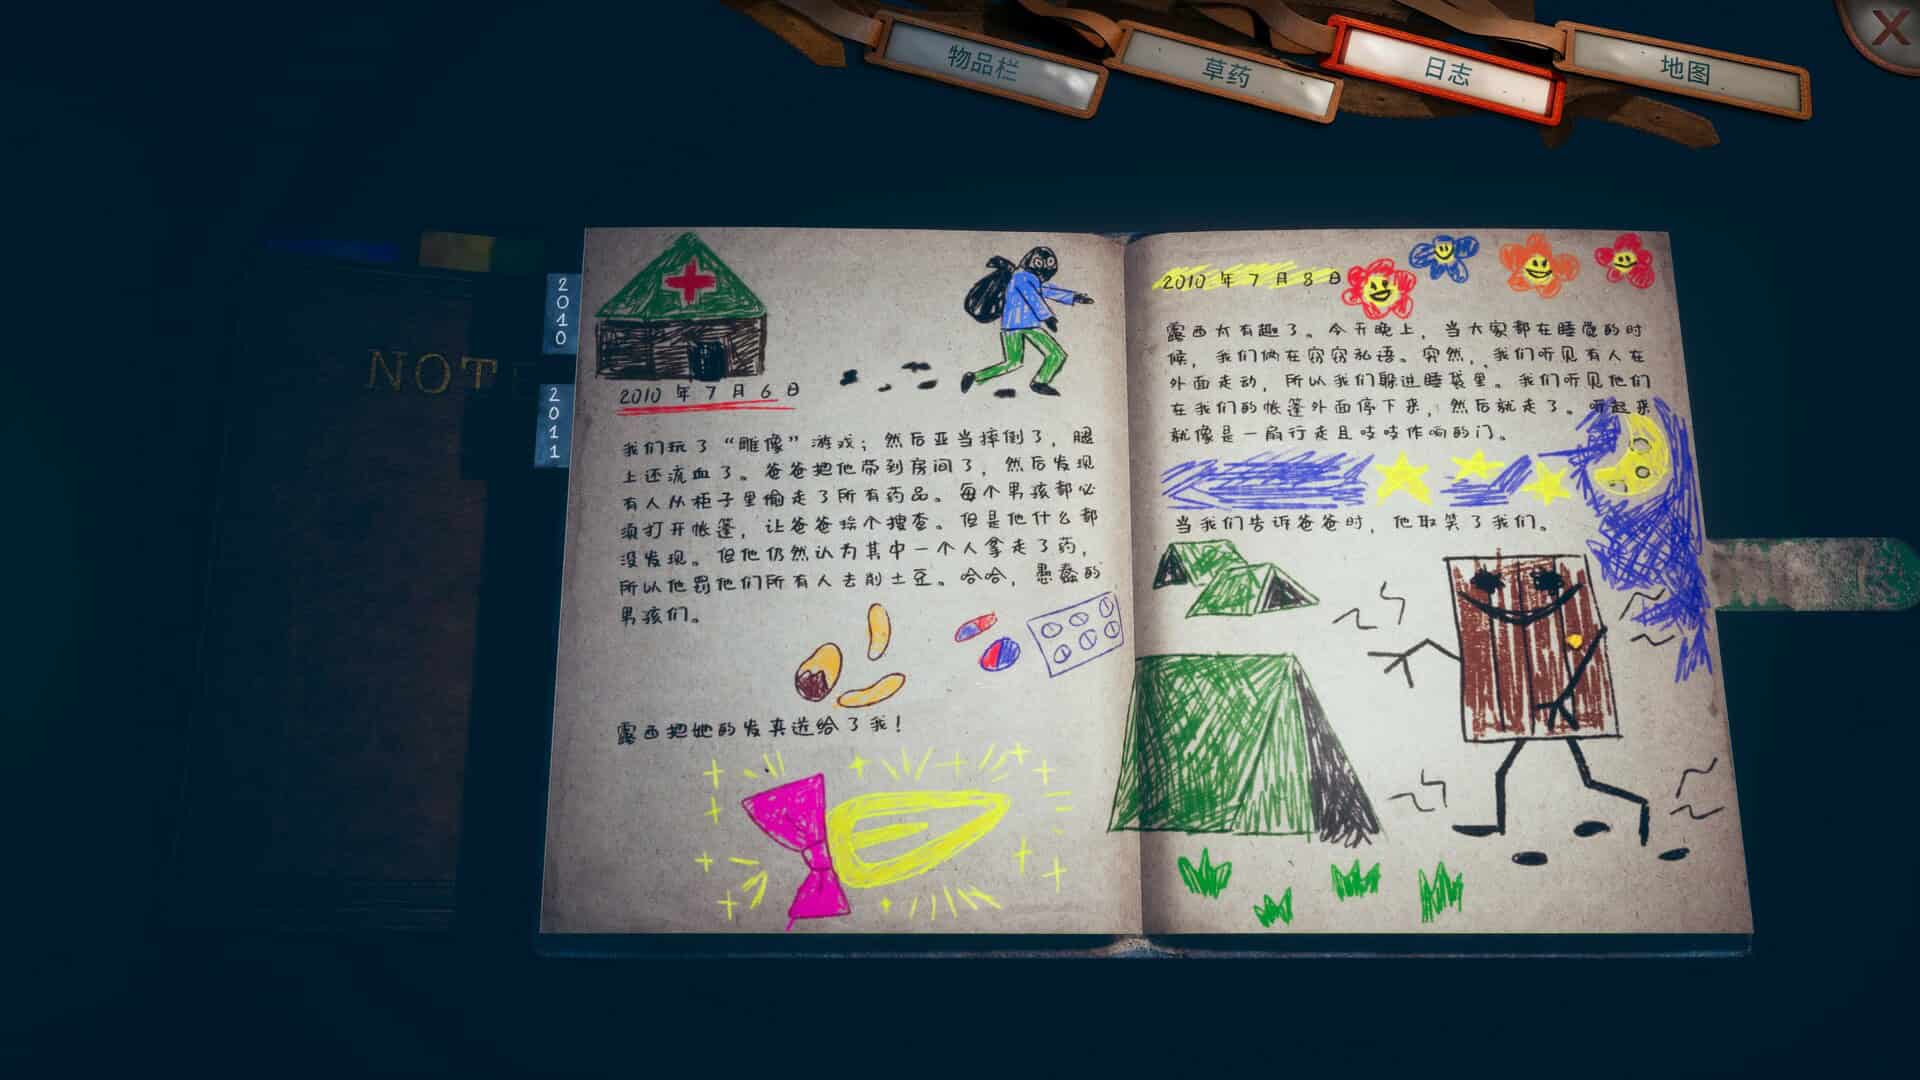 物品栏
草药
日志
地图
NOTE
2010
2011
2010 年 7 月 6 日
我们玩了“雕像”游戏；然后亚当摔倒了，腿
上还流血了。爸爸把他带到房间了，然后发现
有人从柜子里偷走了所有药品。每个男孩都必
须打开帐篷，让爸爸挨个搜查。但是他什么都
没发现。但他仍然认为其中一个人拿走了药，
所以他罚他们所有人去削土豆。哈哈，愚蠢的
男孩们。
露西把她的发夹送给了我！
2010 年 7 月 8 日
露西太有趣了。今天晚上，当大家都在睡觉的时
候，我们俩在窃窃私语。突然，我们听见有人在
外面走动，所以我们躲进睡袋里。我们听见他们
在我们的帐篷外面停下来，然后就走了。听起来
就像是一扇行走且吱吱作响的门。
当我们告诉爸爸时，他取笑了我们。